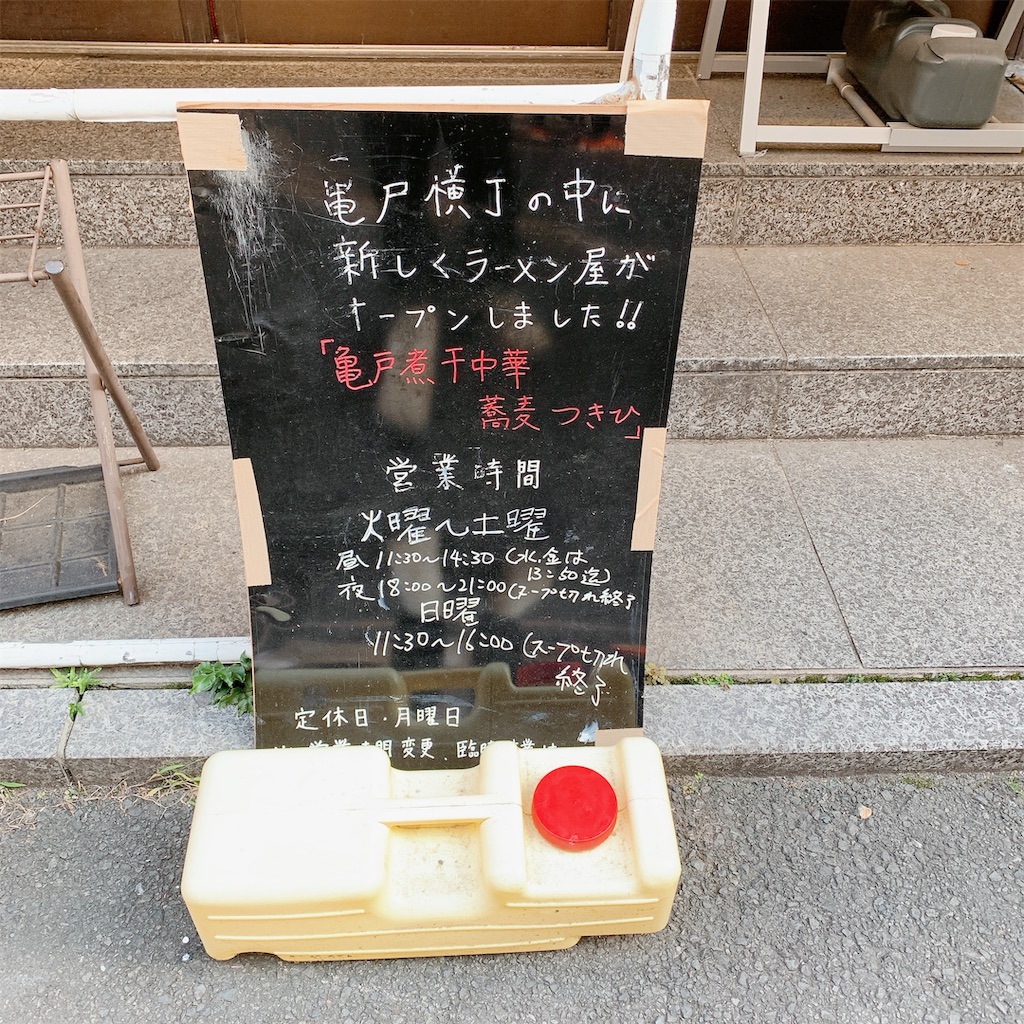 亀戸横丁の中に
新しくラーメン屋が
オープンしました!!
「亀戸煮干中華
蕎麦 つきひ」
営業時間
火曜〜土曜
昼 11:30〜14:30 (水.金は
13:50迄)
夜 18:00〜21:00 (スープ切れ終了
日曜
11:30〜16:00 (スープ切れ
終了
定休日・月曜日
営業時間変更、臨時